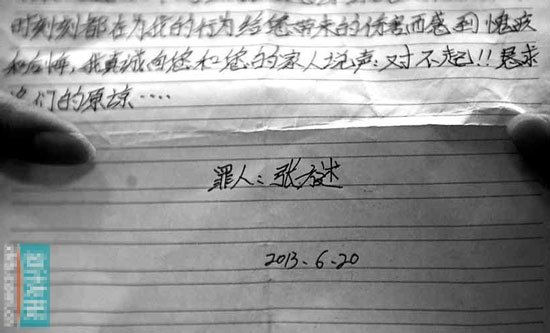 时刻刻都在为我的行为给您带来的伤害而感到愧疚
和后悔,我真诚向您和您的家人说声:对不起!!恳求
你们的原谅····
罪人:张方述
2013.6.20